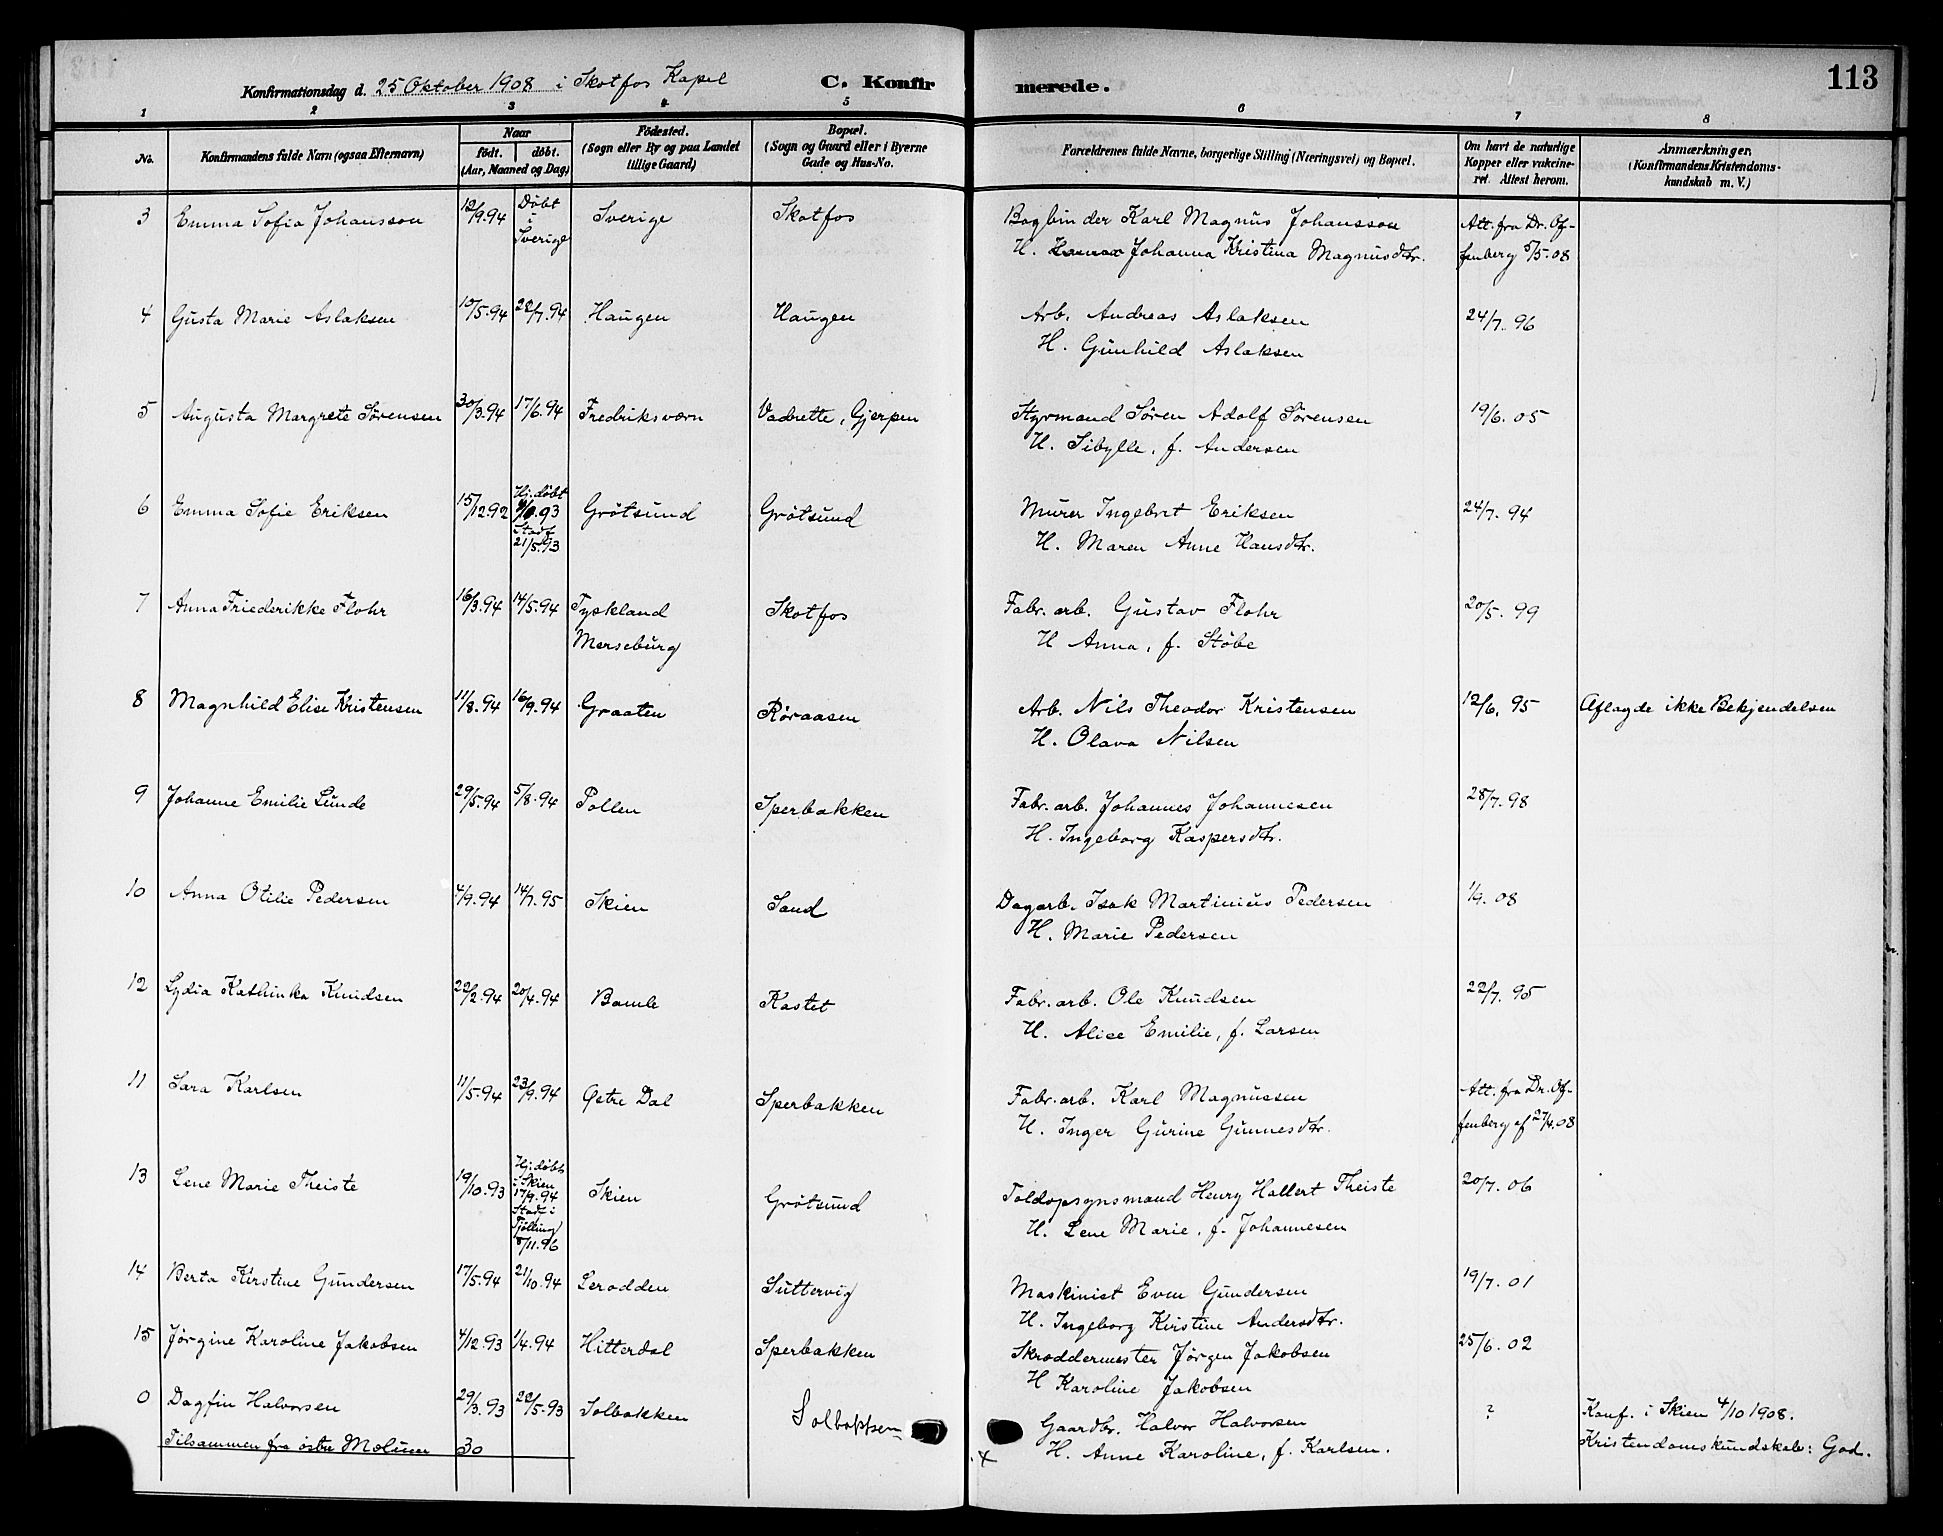 Konfirmationsdag d. 25 Oktober 1908 i Skotfos Kapel C. Konfirmerede. 113
1 2 3 4 5 6 7 8
No. Konfirmandens fulde Navn (ogsaa Efternavn) Naar født. døbt. (Aar, Maaned og Dag) Fødested. (Sogn eller By og paa Landet tillige Gaard) Bopæl. (Sogn og Gaard eller i Byerne Gade og Hus-No. Forældrenes fulde Navne, borgerlige Stilling (Næringsvei) og Bopæl. Om havt de naturlige Kopper eller vakcineret. Attest herom. Anmærkninger. (Konfirmandens Kristendomskundskab m. V.)
3 Emma Sofia Johansson 12/9.94 Døbt i Sverige Sverige Skotfos Bogbinder Karl Magnus Johansson Att. fra Dr. Of-
H. Johanna Kristina Magnusdtr. fenberg 5/5-08
4 Gusta Marie Aslaksen 10/5.94 22/7.94 Haugen Haugen Arb. Andreas Aslaksen 24/7.96
H. Gunhild Aslaksen
5 Augusta Margrete Sørensen 30/3.94 17/6.94 Fredriksværn Vadrette, Gjerpen Styrmand Søren Adolf Sørensen 19/6.05
H. Sibylle, f. Andersen
6 Emma Sofie Eriksen 15/12.92 Hj. døbt .93 Stadf. 21/5.93 Grøtsund Grøtsund Murer Ingebret Eriksen 24/7.94
H. Maren Anne Hansdtr.
7 Anna Friederikke Flohr 16/3.94 14/5.94 Tyskland Skotfos Fabr. arb. Gustav Flohr 20/5.99
Merseburg H Anna, f. Stöbe
8 Magnhild Elise Kristensen 11/8.94 16/9.94 Graaten Røraasen Arb. Nils Theodor Kristensen 12/6.95 Aflagde ikke Bekjendelsen
H. Olava Nilsen
9 Johanne Emilie Lunde 29/5.94 5/8.94 Pollen Sperbakken Fabr. arb. Johannes Johannesen 28/7.98
H. Ingeborg Kaspersdtr.
10 Anna Otilie Pedersen 4/9.94 14/7.95 Skien Sand Dagarb. Isak Martinius Pedersen 1/9.08
H. Marie Pedersen
12 Lydia Kathinka Knudsen 22/2.94 20/4.94 Bamle Kastet Fabr. arb. Ole Knudsen 22/7.95
H. Alice Emilie, f. Larsen
11 Sara Karlsen 11/5.94 23/9.94 Østre Dal Sperbakken Fabr. arb. Karl Magnussen Att. fra Dr. Of-
H. Inger Gurine Gunnesdtr. fenberg af 27/4.08
13 Lene Marie Theiste 19/10.93 Hj. døbt i Skien 17/9.94 Stadf. i Tjølling 8/11.96 Skien Grøtsund Toldopsynsmand Henry Hallert Theiste 20/7.06
H. Lene Marie, f. Johannesen
14 Berta Kirstine Gundersen 17/5.94 21/10.94 Lerodden Suttervig Maskinist Even Gundersen 19/7.01
H. Ingeborg Kirstine Andersdtr.
15 Jørgine Karoline Jakobsen 4/12.93 1/4.94 Hitterdal Sperbakken Skræddermester Jørgen Jakobsen 25/6.02
H Karoline Jakobsen
0 Dagfin Halvorsen 29/3.93 22/5.93 Solbakken Solbakken Gaardbr. Halvor Halvorsen ? Konf. i Skien 4/10 1908.
Tilsammen fra østre Molum 30 x H. Anne Karoline, f. Karlsen. Kristendomskundskab: God.